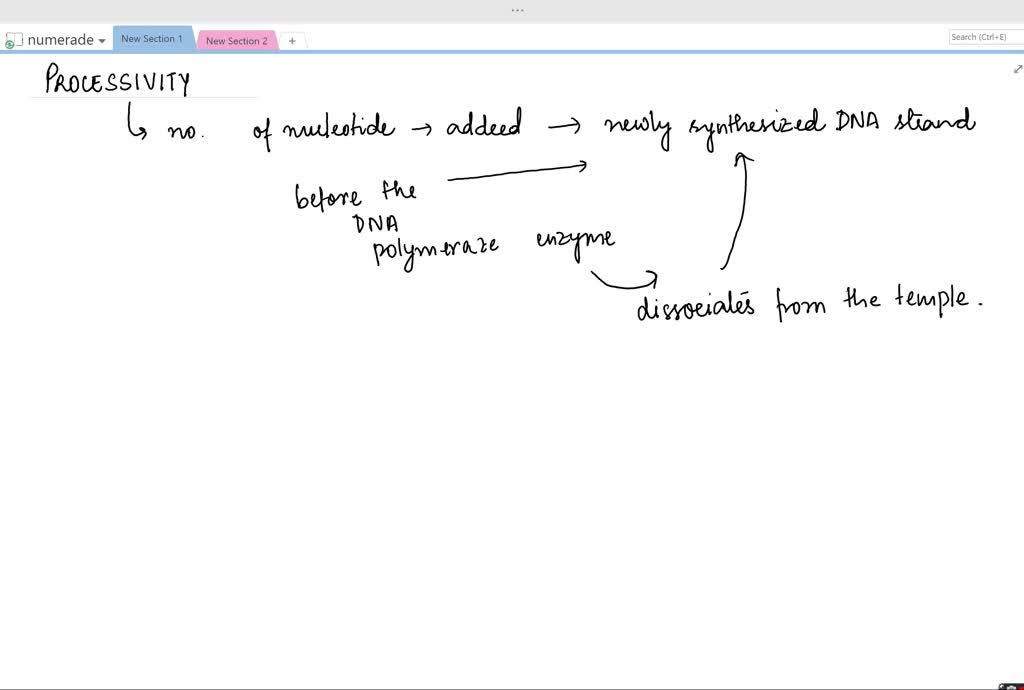 ...
numerade New Section 1 New Section 2 + Search (Ctrl+E)
PROCESSIVITY
↳ no. of nucleotide → addeed → newly synthesized DNA strand
before the
DNA
polymeraze enzyme
dissociates from the temple.